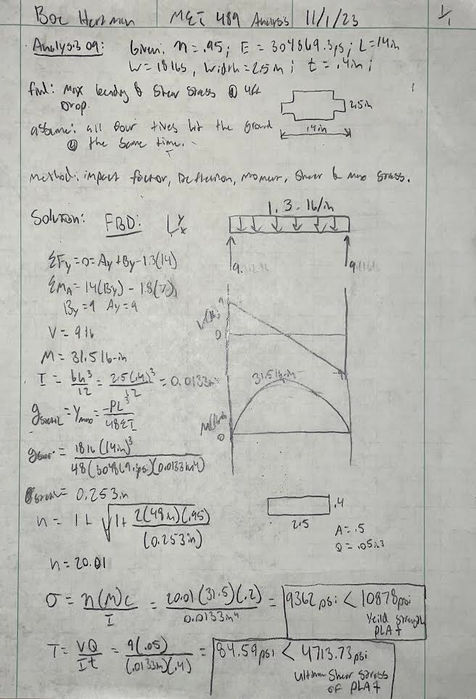 Boe Hartman MET 489 Analysis 11/1/23 1/1
Analysis 09: Given: n = .95; E = 304869.3psi; L = 14in
W = 18 lbs, width = 2.5in; t = .4in;
find: max bending & shear stress @ 4ft
Drop.
2.5in
assume: all four tires hit the ground
@ the same time.
14in
method: impact factor, Deflection, moment, shear & max stress.
Solution: FBD: y x
1.3 lb/in
ΣFy = 0 = Ay + By - 1.3(14)
ΣMA = 14(By) - 18(7)
By = 9 Ay = 9
V = 9 lb
0
M = 31.5 lb-in
I = bh³/12 = 2.5(.4)³/12 = 0.0133in⁴
31.5 lb-in
= Ymax = -PL³/48EI
0
= 18lb (14in)³/48(304869.3psi)(0.0133in⁴)
= 0.253in
.4
2.5
n = 1 + √1 + 2(48in)(.95)/(0.253in)
A = .5
Q = .05in3
n = 20.01
σ = n(M)c/I = 20.01(31.5)(.2)/0.0133in⁴ = 9362 psi < 10878psi
Yeild Strength
PLA+
T = VQ/It = 9(.05)/(.0133in)(.4) = 84.59psi < 4713.73psi
Ultimate Shear Stress
of PLA+